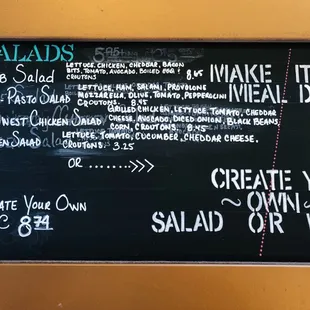 ALADS
B SALAD
LETTUCE, CHICKEN, CHEDDAR, BACON
BITS, TOMATO, AVOCADO, BOILED EGG & 8.45
CROUTONS.
PASTO SALAD
LETTUCE, HAM, SALAMI, PROVOLONE
MOZZARELLA, OLIVE, TOMATO, PEPPERCINI
CROUTONS. 8.45
NEST CHICKEN SALAD
GRILLED CHICKEN, LETTUCE, TOMATO, CHEDDAR
CHEESE, AVOCADO, DICED ONION, BLACK BEANS,
CORN, CROUTONS. 8.45
EN SALAD
LETTUCE, TOMATO, CUCUMBER, CHEDDAR CHEESE,
CROUTONS. 3.25
OR ........>>>
ATE YOUR OWN
C 8.74
MAKE IT
MEAL D
CREATE Y
~ OWN ~
SALAD OR